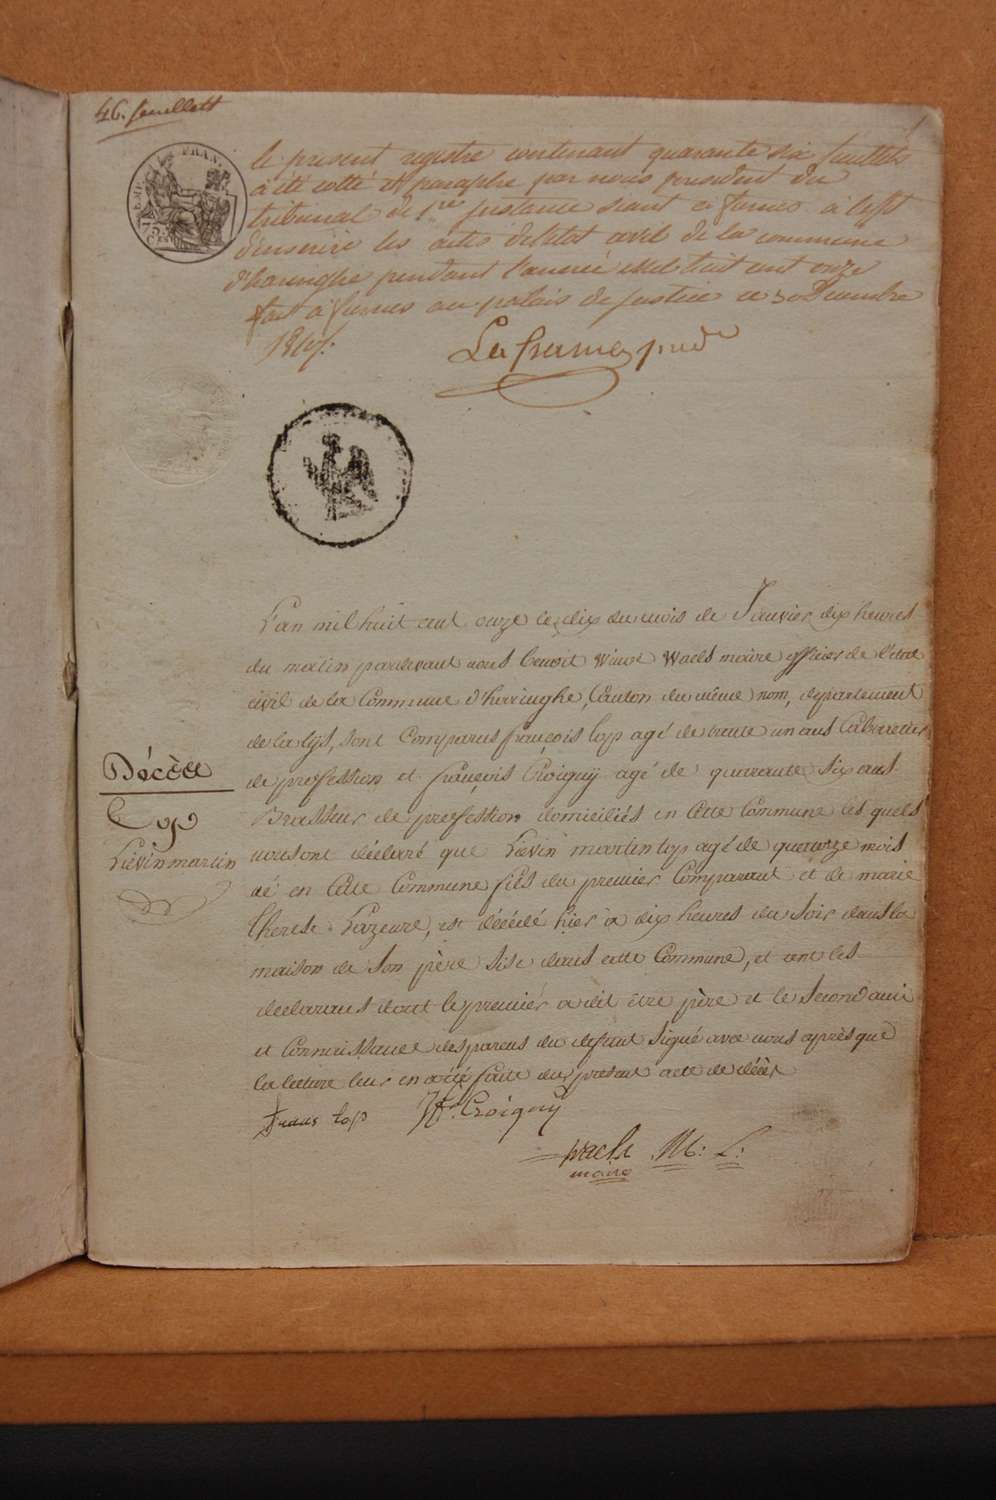 46. feuillets
1
EMP. FRAN.
75
CEN
le present registre contenant quarante six feuillets
a été cotté et paraphé par nous president du
tribunal de 1.re instance séant a furnes a l'effet
d'inscrire les actes de l'etat civil de la commune
d'haringhe pendant l'année mil huit cent onze
fait a furnes au palais de justice ce 30 Decembre
pred
L'an mil huit cent onze le dix du mois de Janvier dix heures
du matin pardevant nous Benoit Winoc Waels maire officier de l'état
civil de la Commune d'herringhe, Canton du même nom, departement
de la lys, sont Comparus françois top agé de trente un ans Cabaretier
de profession et françois Croiguy agé de quarante six ans
Brasseur de profession domiciliés en Cette Commune les quels
nous ont déclaré que Liévin martin top agé de quatorze mois
né en Cette Commune fils du premier Comparant et de marie
therese Lazeure, est décédé hier à dix heures du Soir dans la
maison de Son père Sise dans cette Commune, et ont les
declarans dont le premier a dit être père et le Second ami
et Connaissance des parens du defunt Signé avec nous après que
la lecture leur en a été faite du présent acte de décès
Décèe
Top
Liévin martin
frans top
Croiguy
Waels M: L:
maire